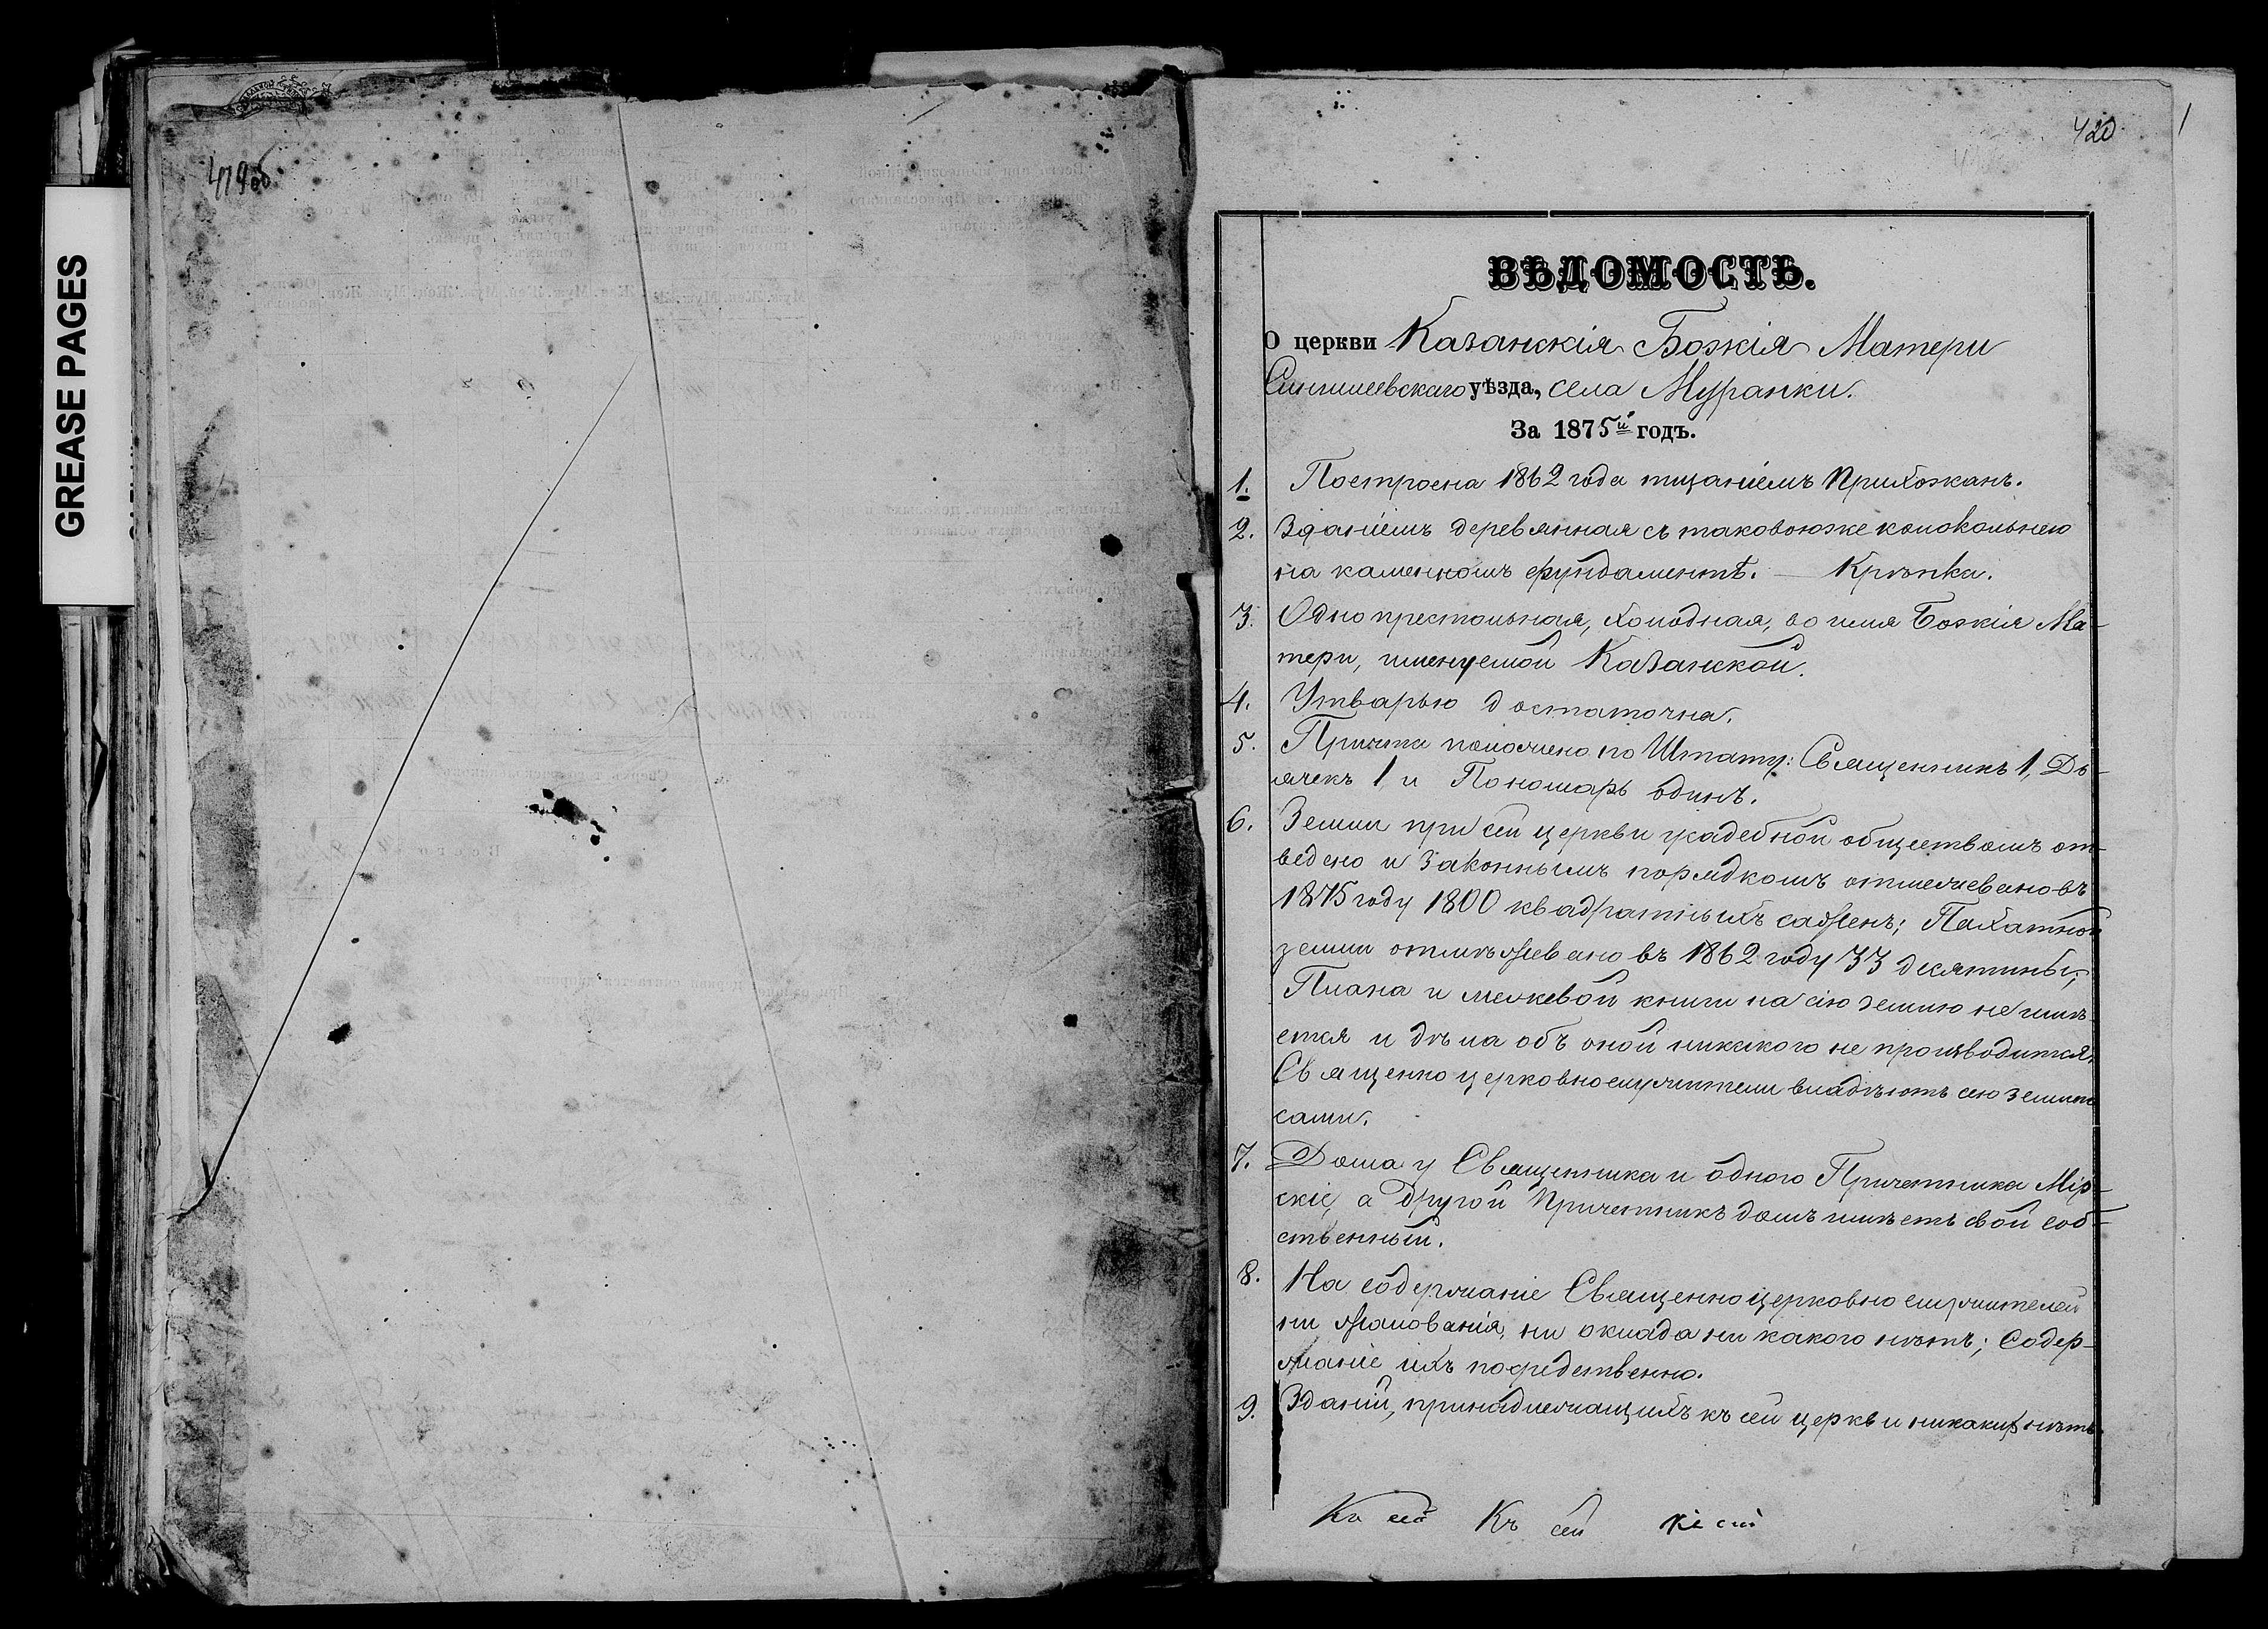 GREASE PAGES
419об.
420
ВѢДОМОСТЬ.
О церкви Казанскія Божія Матери
Сингилеевскаго уѣзда, села Муранки.
За 1875й годъ.
1. Построена 1862 года тщаніемъ Прихожанъ.
2. Зданіемъ деревянная съ таковоюже колокольнею
на каменномъ фундаментѣ. — Крѣпка.
3. Однопрестольная, холодная, во имя Божія Ма-
тери, именуемой Казанской.
4. Утварью достаточна.
5. Причта положено по Штату: Священникъ 1, Дь-
ячекъ 1 и Пономарь одинъ.
6. Земли при сей церкви усадебной обществомъ от-
ведено и законнымъ порядкомъ отмежевано въ
1875 году 1800 квадратныхъ саженъ; Пахатной
земли отмѣжевано въ 1862 году 33 десятины;
Плана и межевой книги на сію землю не имѣ-
ется и дѣла объ оной никакого не производится.
Священноцерковнослужители владѣютъ сею землею
сами.
7. Дома у Священника и одного Причетника Мір-
скіе, а другой Причетникъ домъ имѣетъ свой соб-
ственный.
8. На содержаніе Священноцерковнослужителей
ни жалованія, ни оклада ни какого нѣтъ; Содер-
жаніе ихъ посредственно.
9. Зданій, принадлежащихъ къ сей церкви никакихъ нѣтъ.
Къ сей Къ сей